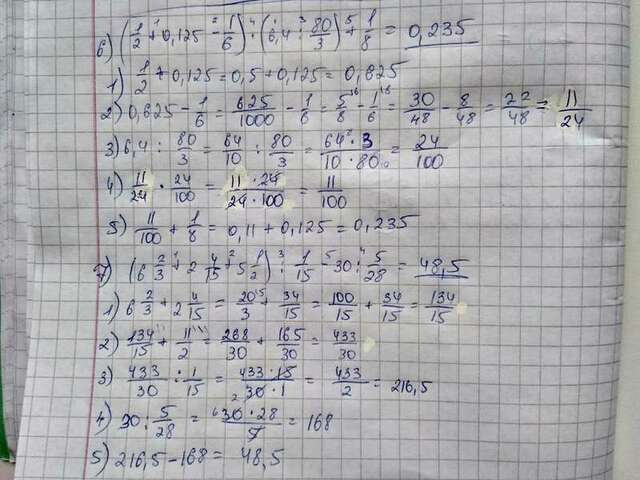 6) (1/2 + 0,125 - 1/6) · (6,4 : 80/3) + 1/8 = 0,235
1) 1/2 + 0,125 = 0,5 + 0,125 = 0,625
2) 0,625 - 1/6 = 625/1000 - 1/6 = 5/8 - 1/6 = 30/48 - 8/48 = 22/48 = 11/24
3) 6,4 : 80/3 = 64/10 : 80/3 = 64·3/10·80 = 24/100
4) 11/24 · 24/100 = 11·24/24·100 = 11/100
5) 11/100 + 1/8 = 0,11 + 0,125 = 0,235
7) (6 2/3 + 2 4/15 + 5 1/2) : 1/15 - 30 : 5/28 = 48,5
1) 6 2/3 + 2 4/15 = 20/3 + 34/15 = 100/15 + 34/15 = 134/15
2) 134/15 + 11/2 = 268/30 + 165/30 = 433/30
3) 433/30 : 1/15 = 433·15/30·1 = 433/2 = 216,5
4) 30 : 5/28 = 30·28/5 = 168
5) 216,5 - 168 = 48,5